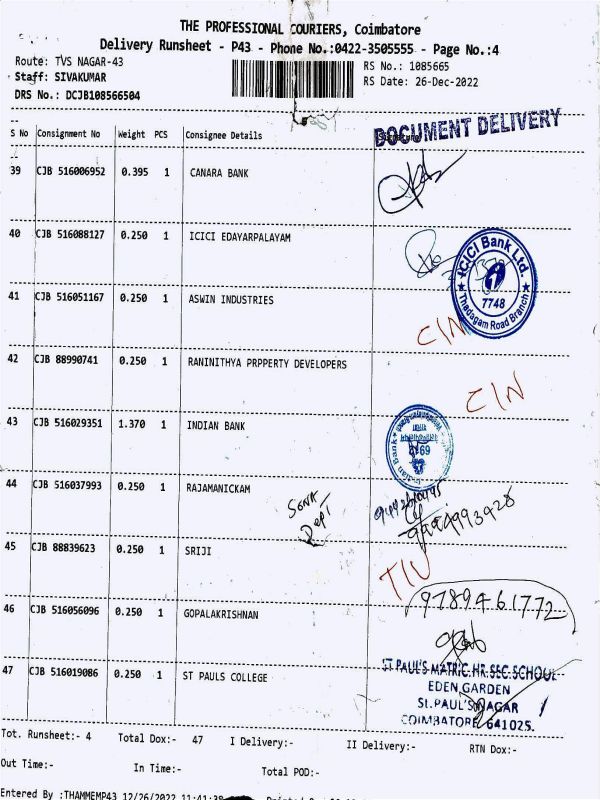 THE PROFESSIONAL COURIERS, Coimbatore
Delivery Runsheet - P43 - Phone No.:0422-3505555 - Page No.:4
Route: TVS NAGAR-43
RS No.: 1085665
Staff: SIVAKUMAR
RS Date: 26-Dec-2022
DRS No.: DCJB108566504
DOCUMENT DELIVERY
S No Consignment No Weight PCS Consignee Details
39 CJB 516006952 0.395 1 CANARA BANK
40 CJB 516088127 0.250 1 ICICI EDAYARPALAYAM
ICICI Bank Ltd.
7748
Thadagam Road Branch
41 CJB 516051167 0.250 1 ASWIN INDUSTRIES
CIN
42 CJB 88990741 0.250 1 RANINITHYA PRPPERTY DEVELOPERS
CIN
43 CJB 516029351 1.370 1 INDIAN BANK
Indian Bank
44 CJB 516037993 0.250 1 RAJAMANICKAM
SONA
Dept
9994993928
45 CJB 88839623 0.250 1 SRIJI
46 CJB 516056096 0.250 1 GOPALAKRISHNAN
9789461772
47 CJB 516019086 0.250 1 ST PAULS COLLEGE
ST PAUL'S MATRIC.HR.SEC.SCHOOL
EDEN GARDEN
St.PAUL'S NAGAR
COIMBATORE 641025.
Tot. Runsheet:- 4 Total Dox:- 47 I Delivery:- II Delivery:- RTN Dox:-
Out Time:- In Time:- Total POD:-
Entered By :THAMMEMP43 12/26/2022 11:41:38